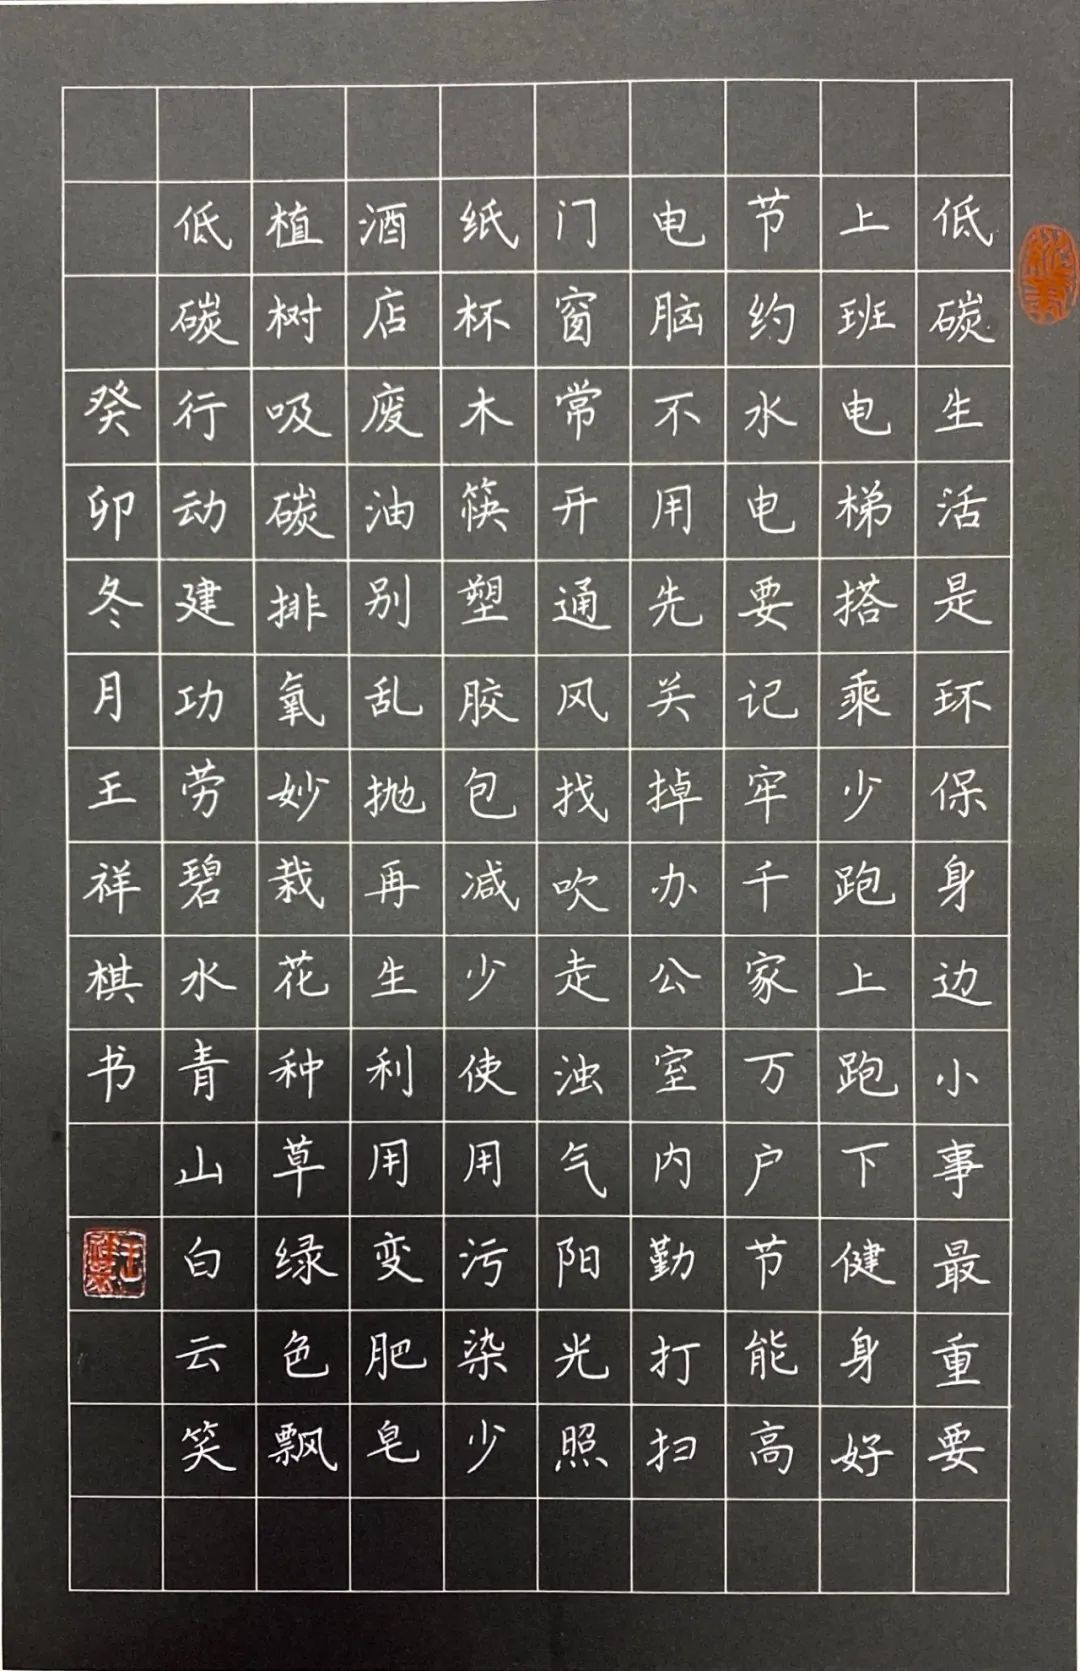 低碳生活是环保身边小事最重要
上班电梯搭乘少跑上跑下健身好
节约水电要记牢千家万户节能高
电脑不用先关掉办公室内勤打扫
门窗常开通风找吹走浊气阳光照
纸杯木筷塑胶包减少使用污染少
酒店废油别乱抛再生利用变肥皂
植树吸碳排氧妙栽花种草绿色飘
低碳行动建功劳碧水青山白云笑
癸卯冬月王祥棋书